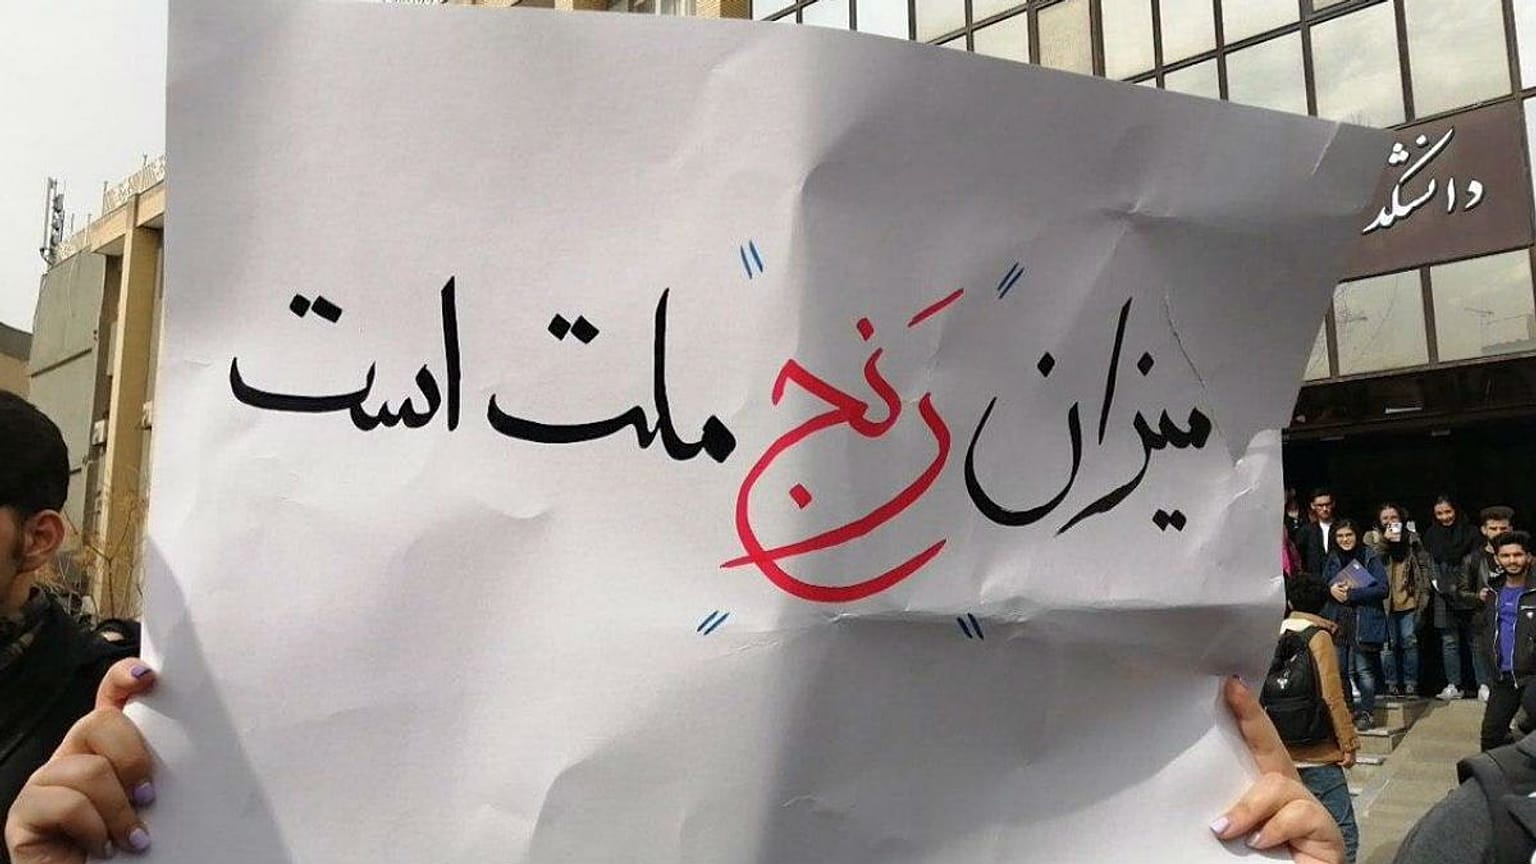 میزان "رنج" ملت است
دانشکد